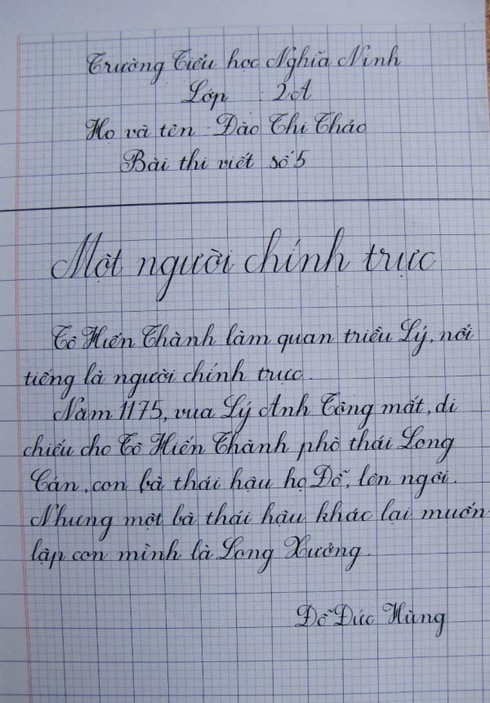 Trường Tiểu học Nghĩa Ninh
Lớp : 2A
Họ và tên : Đào Thi Thảo
Bài thi viết số 5
Một người chính trực
Tô Hiến Thành làm quan triều Lý, nổi
tiếng là người chính trưc.
Năm 1175, vua Lý Anh Tông mất, di
chiếu cho Tô Hiến Thành phò thái Long
Cán, con bà thái hậu họ Đỗ, lên ngôi.
Nhưng một bà thái hậu khác lại muốn
lập con mình là Long Xưởng.
Đỗ Đức Hùng